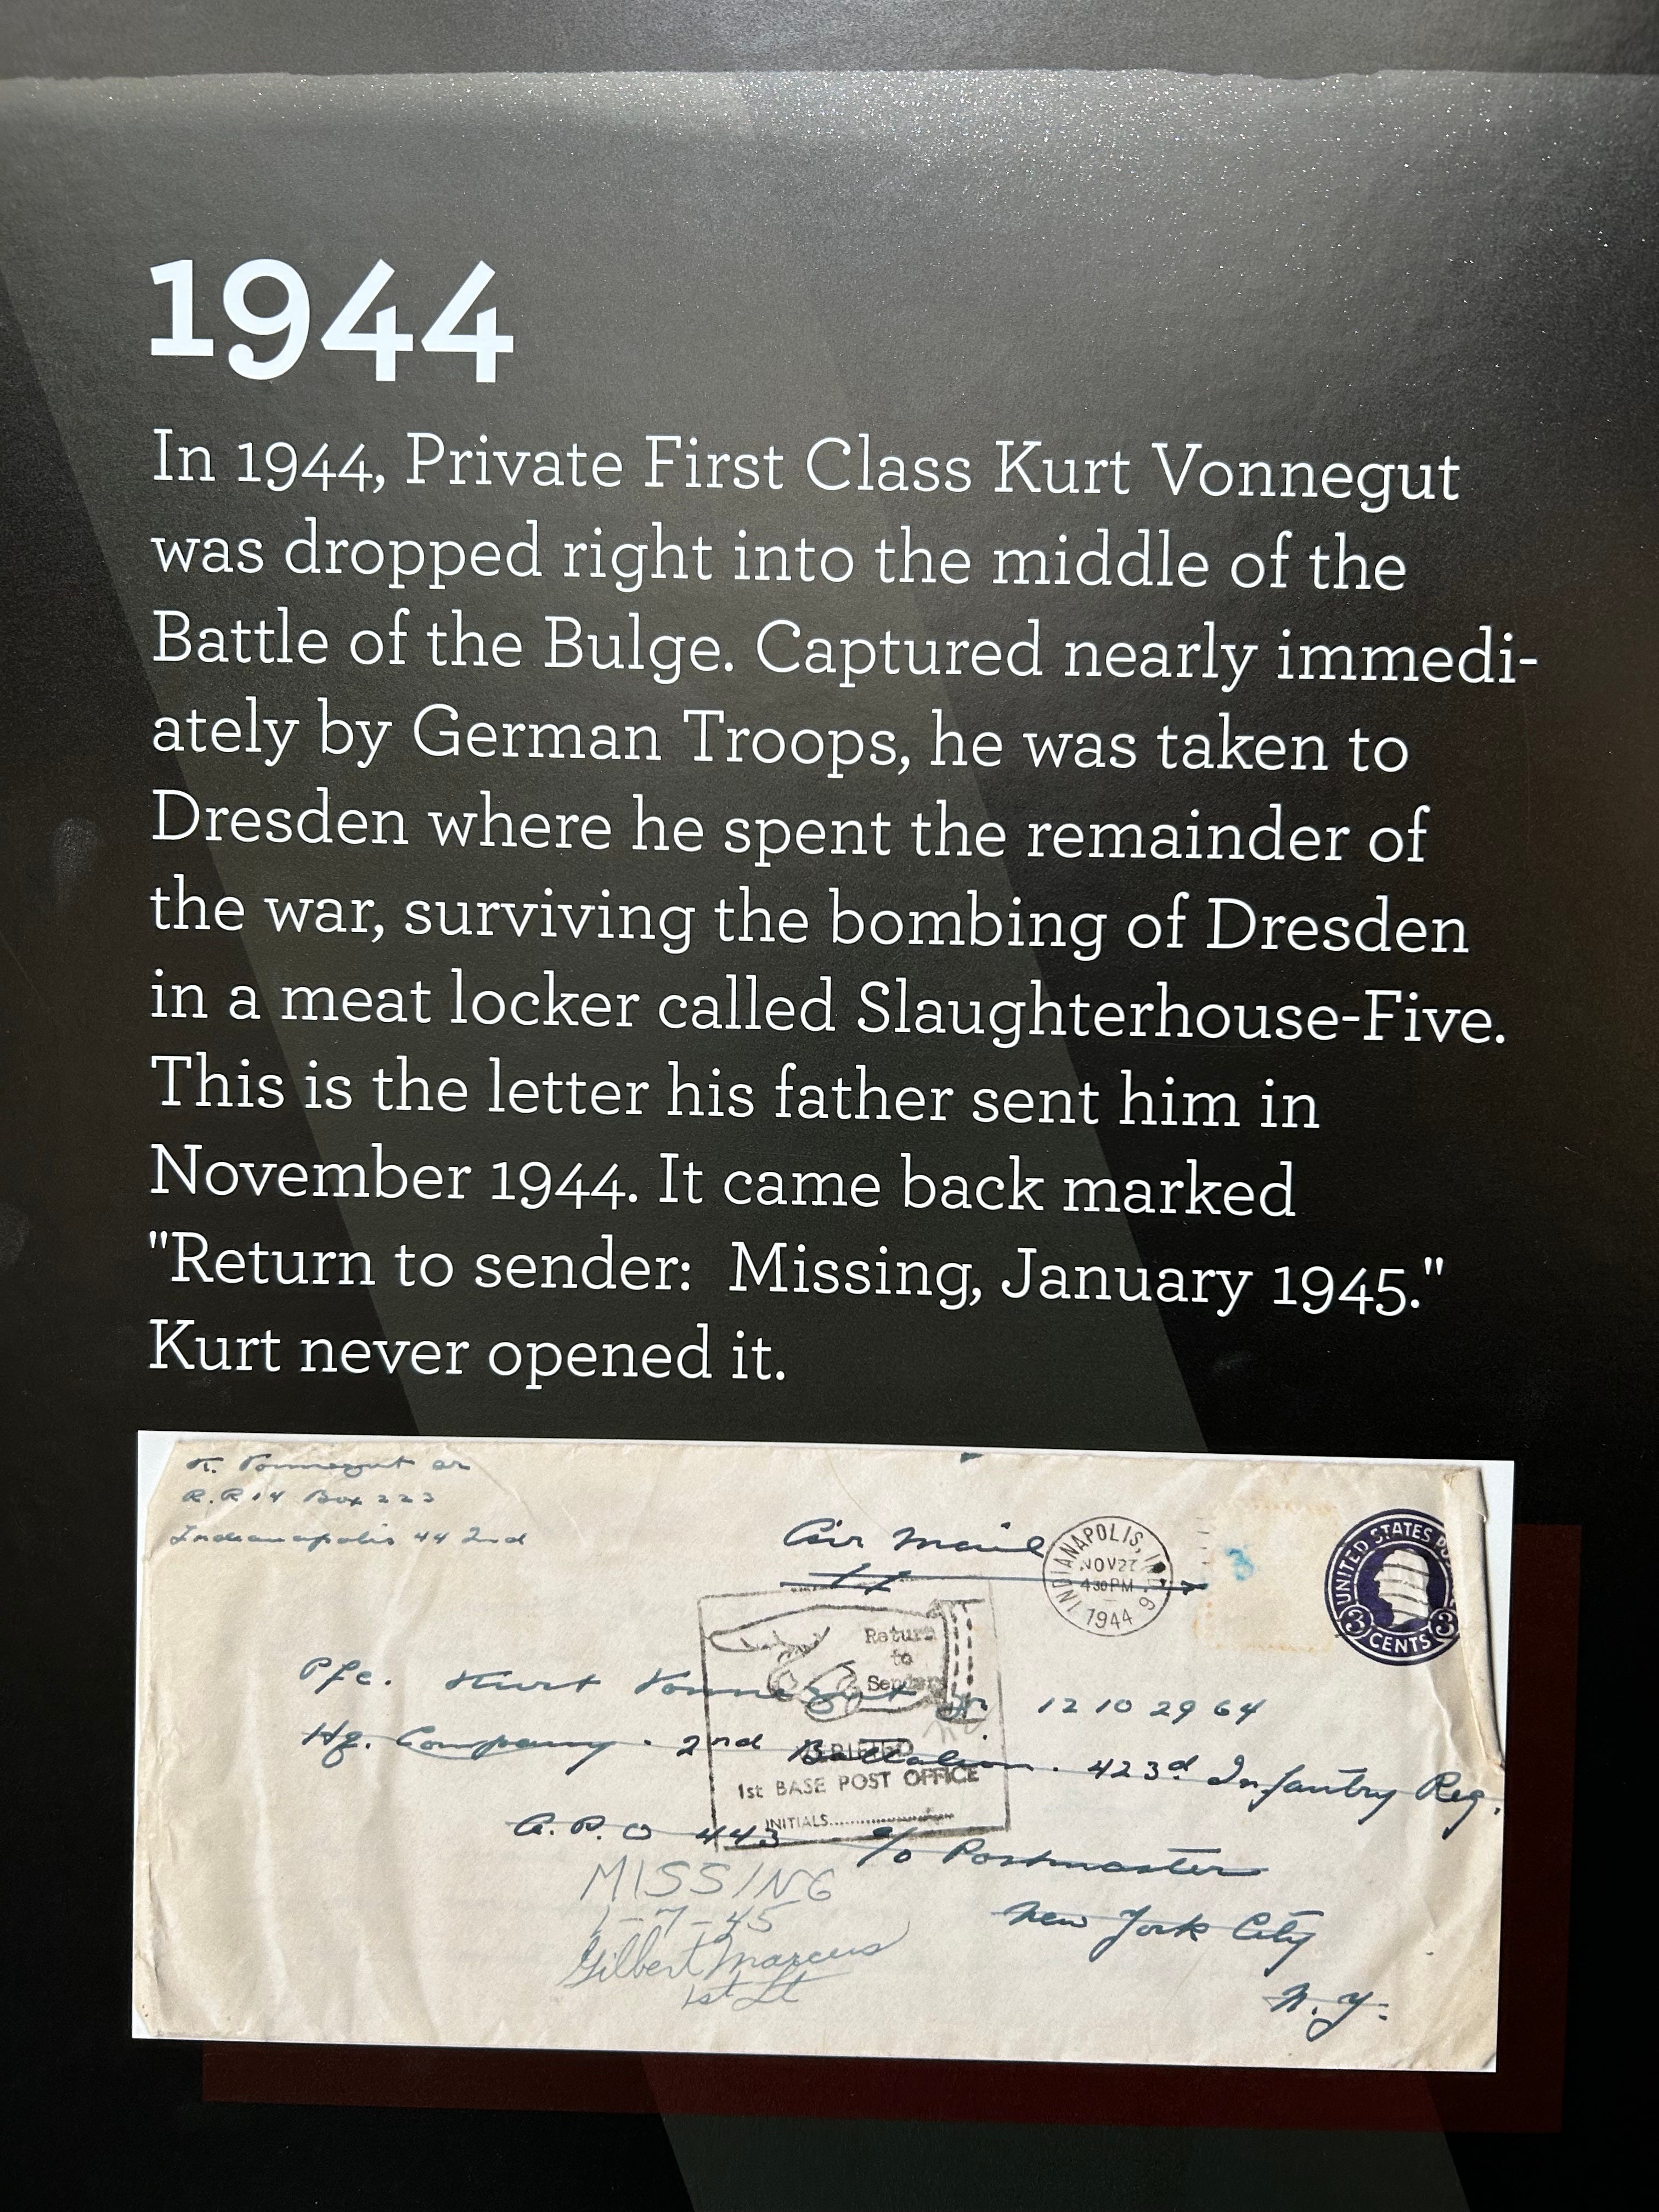 1944
In 1944, Private First Class Kurt Vonnegut
was dropped right into the middle of the
Battle of the Bulge. Captured nearly immedi-
ately by German Troops, he was taken to
Dresden where he spent the remainder of
the war, surviving the bombing of Dresden
in a meat locker called Slaughterhouse-Five.
This is the letter his father sent him in
November 1944. It came back marked
"Return to sender:  Missing, January 1945."
Kurt never opened it.
K. Vonnegut Sr
R.R 14 Box 223
Indianapolis 44 Ind
Air Mail
INDIANAPOLIS, IND.
NOV 27
4 30 PM
1944
3
UNITED STATES
3 CENTS 3
Return
to
Sender
Pfc. Kurt Vonnegut Jr. 12 10 29 64
Hq. Company · 2nd Battalion · 423d Infantry Reg.
1st BASE POST OFFICE
INITIALS
A.P.O 443 c/o Postmaster
New York City
N.Y.
MISSING
1-7-45
Gilbert Marcus
1st Lt